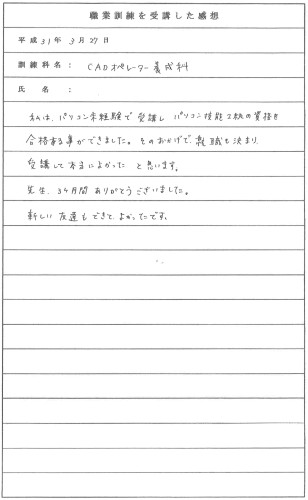 職業訓練を受講した感想
平成 31年 3月 27日
訓練科名： CADオペレーター養成科
氏名：
私は、パソコン未経験で受講し パソコン技能2級の資格を
合格する事ができました。そのおかげで、就職も決まり、
受講して本当によかった と思います。
先生、3ヶ月間ありがとうございました。
新しい友達もできて、よかったです。